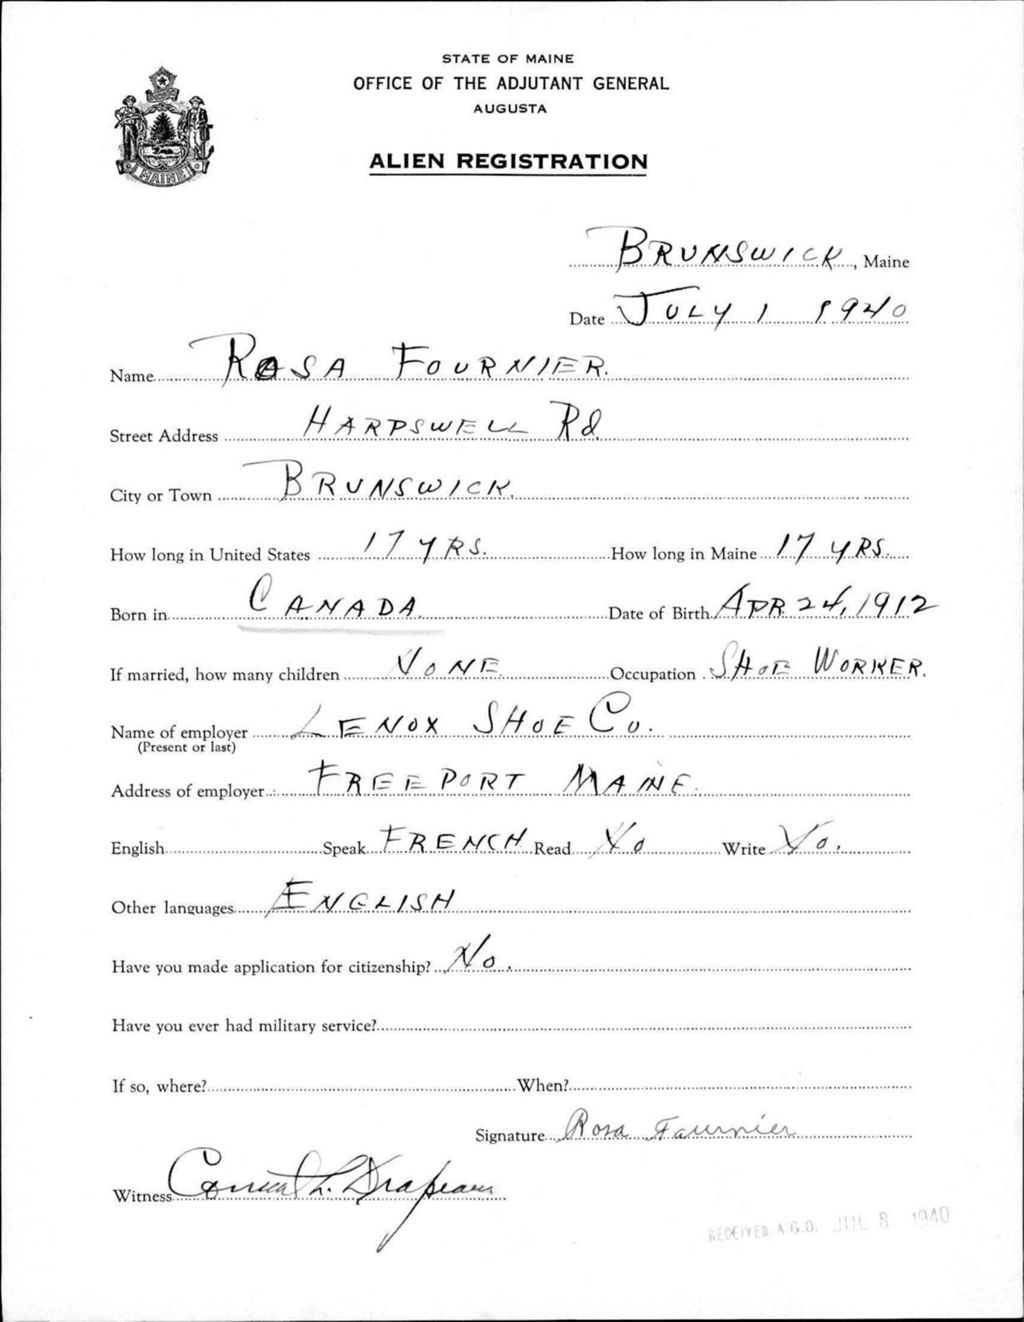 STATE OF MAINE
OFFICE OF THE ADJUTANT GENERAL
AUGUSTA
MAINE
ALIEN REGISTRATION
BRUNSWICK, Maine
Date JULY 1 1940
Name ROSA FOURNIER.
Street Address HARPSWELL Rd
City or Town BRUNSWICK.
How long in United States 17 YRS. How long in Maine 17 YRS.
Born in CANADA. Date of Birth APR 24, 1912
If married, how many children NONE. Occupation SHOE WORKER.
Name of employer LENOX SHOE Co.
(Present or last)
Address of employer FREEPORT MAINE.
English Speak FRENCH Read No Write No.
Other languages ENGLISH
Have you made application for citizenship? No.
Have you ever had military service?
If so, where? When?
Signature Rosa Fournier
Witness L. Drapeau
RECEIVED A.G.O. JUL 8 1940